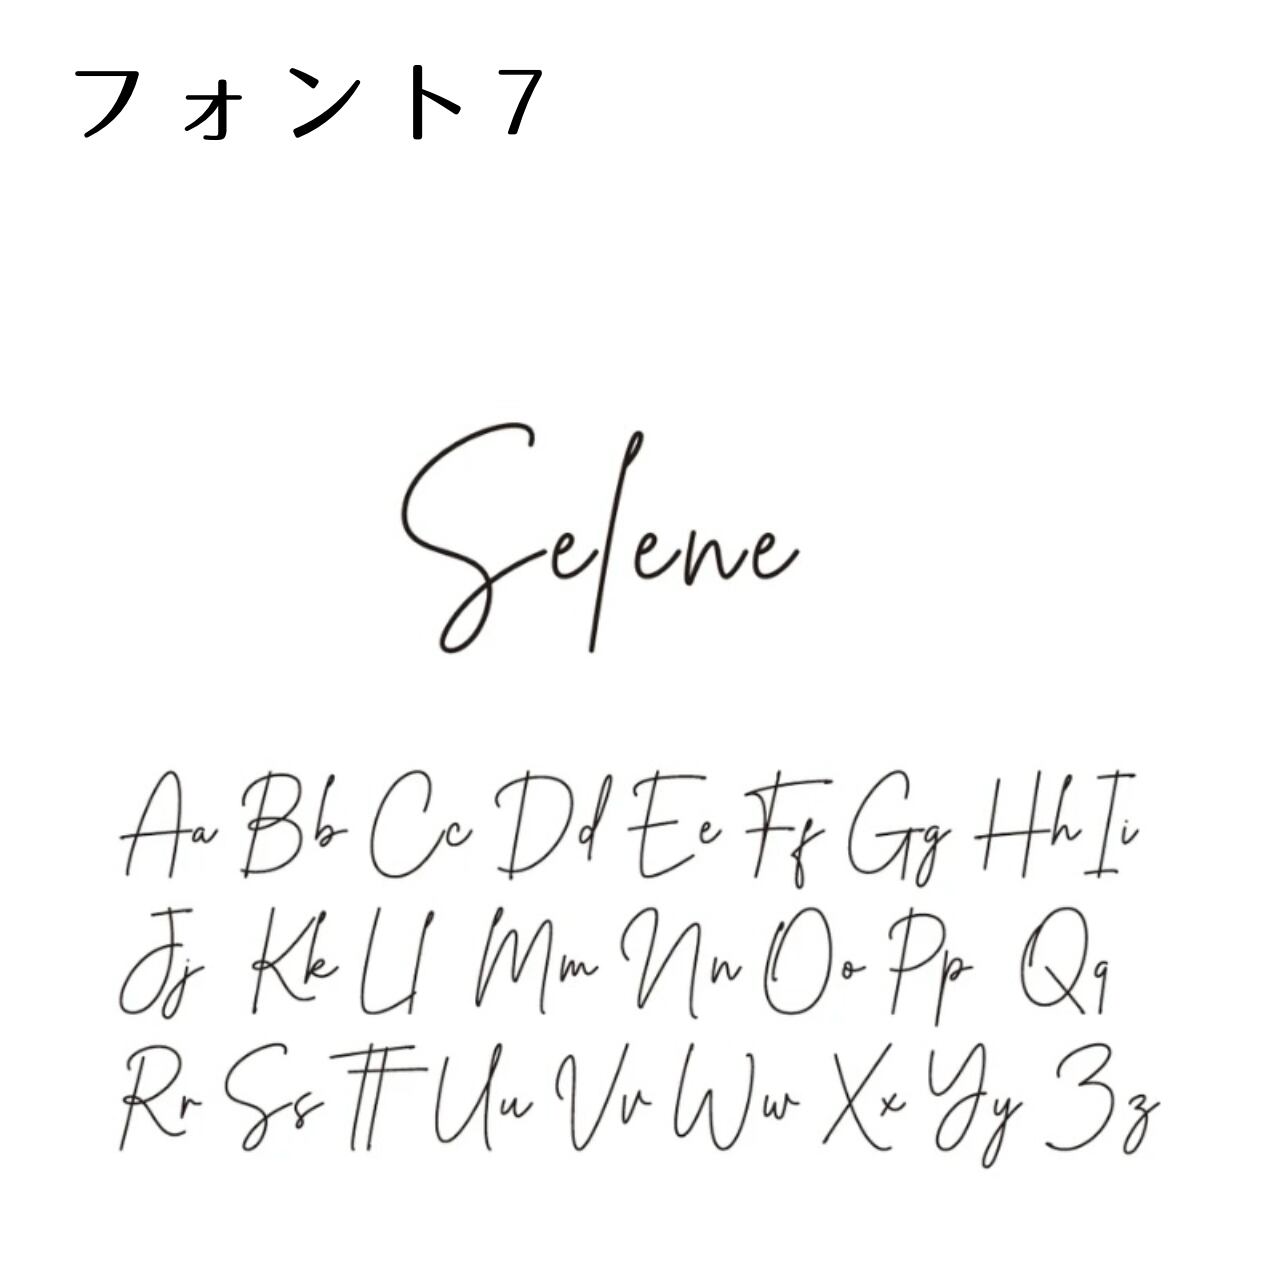 フォント7
Selene
Aa Bb Cc Dd Ee Ff Gg Hh Ii
Jj Kk Ll Mm Nn Oo Pp Qq
Rr Ss Tt Uu Vv Ww Xx Yy Zz